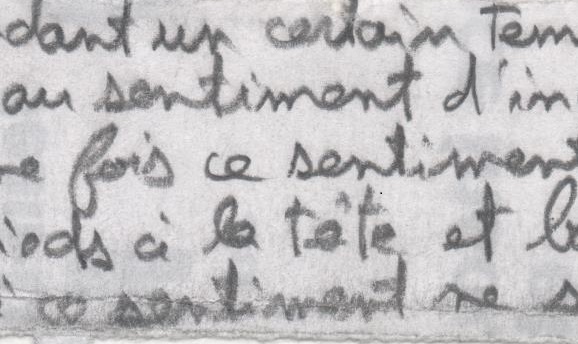 dant un certain tem
au sentiment d'in
ne fois ce sentiment
ieds à la tête et l
ce sentiment ne s